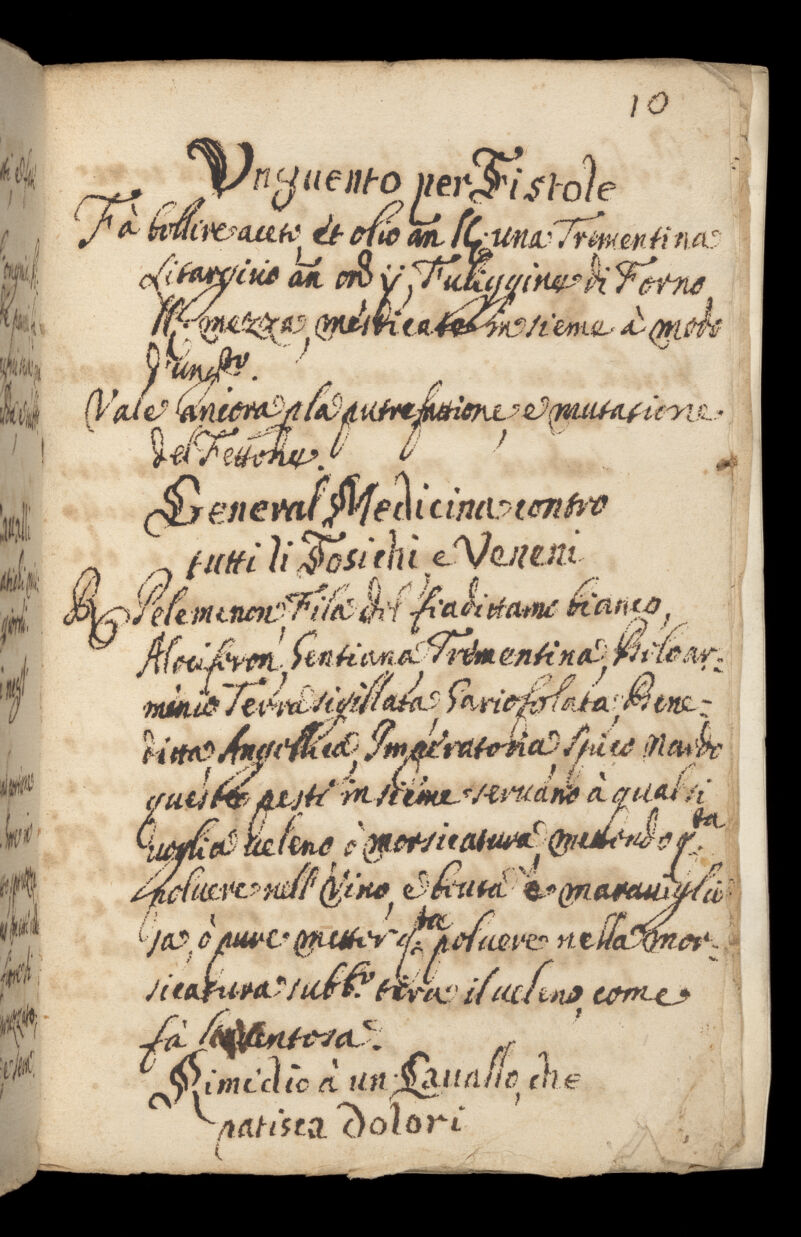 10
Unguento per Fistole
Fà bollire aceto, et olio añ lb. una Trementina
Litargirio añ onc ij, Fuliggine di Forno
lb. mezza, mesticate insieme à modo
d'ung.to.
Vale ancora p la putrefattione, e mutatione
del Fettone.
General Medicina contro
tutti li Tosichi, e Veneni
Rx Pelemenon, Fila del fiadittamo bianco,
Alociferon, Gentiana, Trementina, Boloar-
minio Terra sigillata, Gariofolata, Bene-
ditta, Angellica, Imperatoria, Spico Nardo
queste pesti insieme servano à qual si
voglia veleno, ò morsicatura, mettendo q.ta
polvere nell' Vino, e beuta è maraviglio
sa, ò pure metter q.ta polvere nella mor-
sicatura subb.o tira il veleno, come
fà la ventosa.
Rimedio à un Cavallo, che
patisca dolori